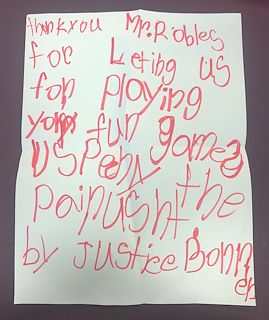 thankyou Mr. Robles
for Leting us
for playing
your fun games
USPechly the
painusht
by Justice Bonn
er